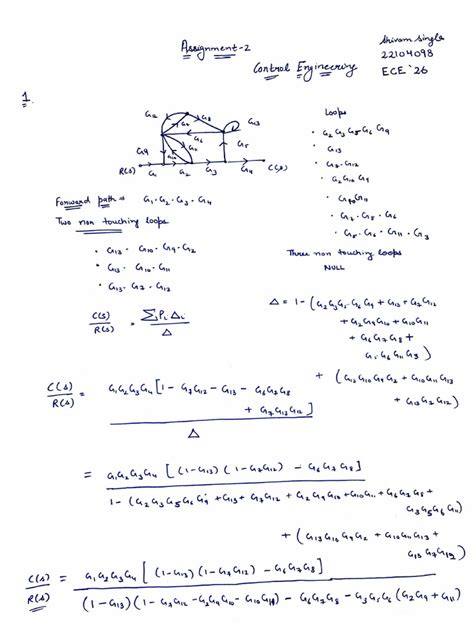 Assignment-2
Shivam Singla
22104098
Control Engineering
ECE '26
1.
G12 G7 G8 G13
G9 G10 G11 G5
R(s) G1 G2 G3 G4 C(s)
Loops
• G2 G3 G5 G6 G9
• G13
• G7 · G12
• G2 G10 G9
• G10 G11
• G7 · G8 · G6
• G5 · G6 · G11 · G3
Forward path = G1 · G2 · G3 · G4
Two non touching loops
• G13 · G10 · G9 · G2
• G13 · G10 · G11
• G13 · G7 · G12
Three non touching loops
NULL
C(s)/R(s) = Σ Pi Δi / Δ
Δ = 1 - (G2 G3 G5 G6 G9 + G13 + G7 G12
+ G2 G9 G10 + G10 G11
+ G6 G7 G8 +
G5 G6 G11 G3)
+ (G13 G10 G9 G2 + G10 G11 G13
+ G13 G7 G12)
C(s)/R(s) = G1 G2 G3 G4 [1 - G7 G12 - G13 - G6 G7 G8
+ G7 G12 G13]
Δ
= G1 G2 G3 G4 [(1-G13)(1-G7 G12) - G6 G7 G8]
1 - (G2 G3 G5 G6 G9 + G13 + G7 G12 + G2 G9 G10 + G10 G11 + G6 G7 G8 +
G3 G5 G6 G11)
+ (G13 G10 G9 G2 + G10 G11 G13 +
G13 G7 G12)
C(s)/R(s) = G1 G2 G3 G4 [(1-G13)(1-G7 G12) - G6 G7 G8]
(1-G13)(1-G7 G12 - G2 G9 G10 - G10 G11) - G6 G7 G8 - G3 G5 G6 (G2 G9 + G11)